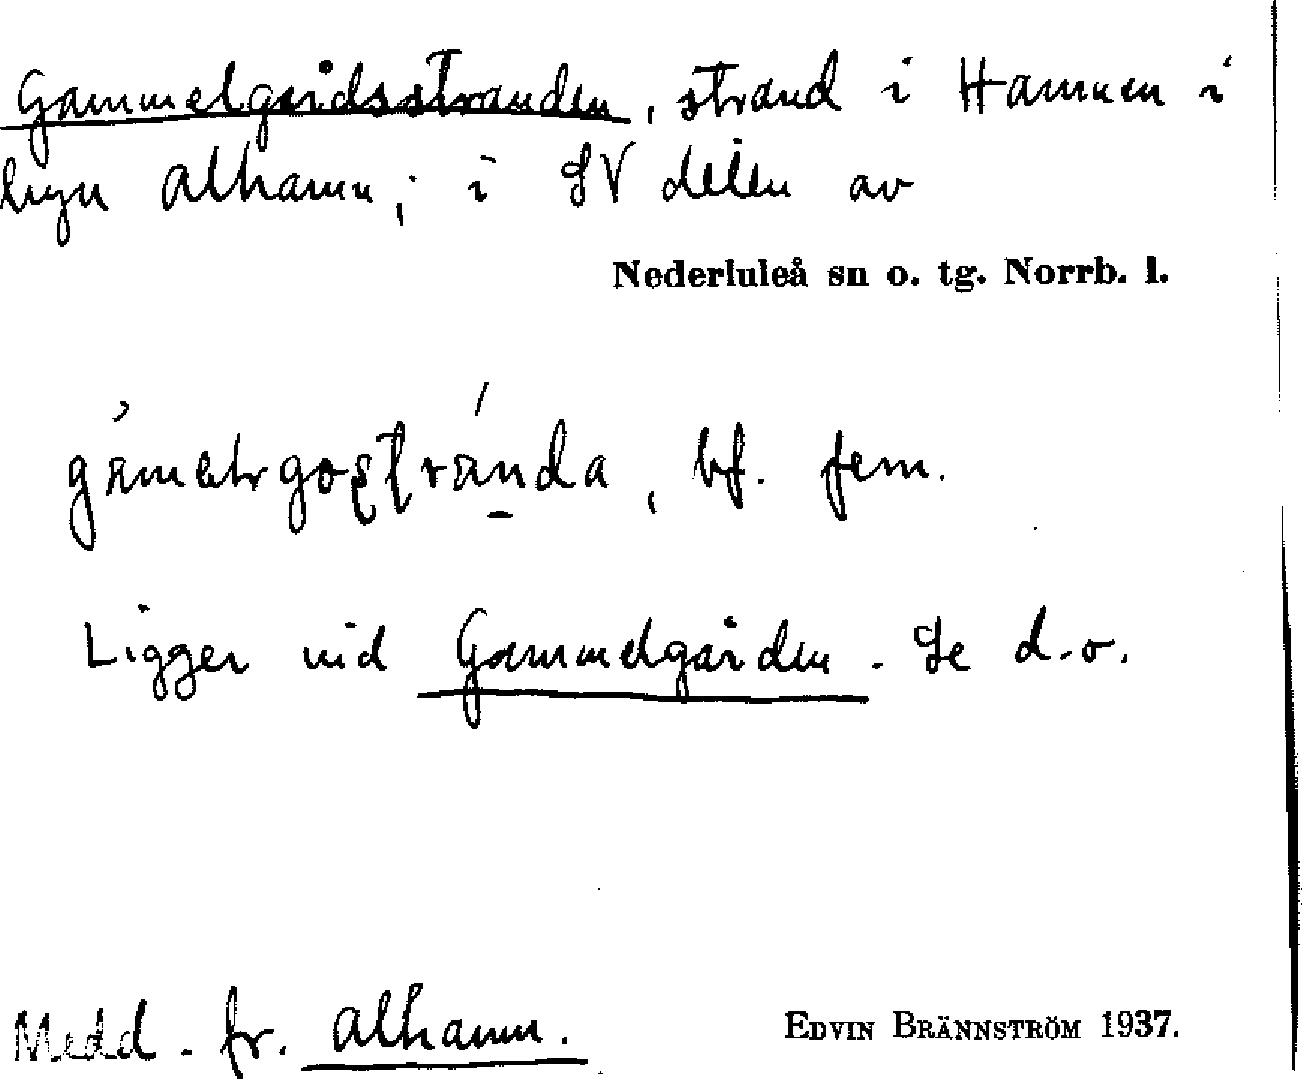 Gammelgårdsstranden, strand i Hamnen i
byn Alhamn; i SV delen av
Nederluleå sn o. tg. Norrb. l.
bf. fem.
Ligger vid Gammelgården. Se d.o.
Medd. fr. Alhamn.
EDVIN BRÄNNSTRÖM 1937.